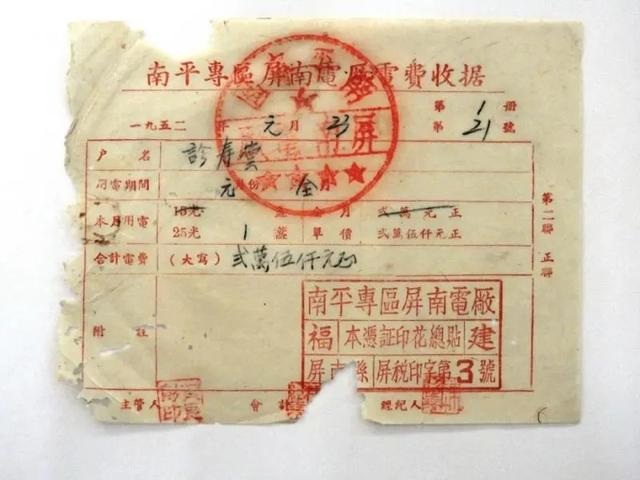 南平專區屏南電厰電費收据
第1册
一九五二年元月23日
第21號
户名 診寿雲
用電期間 元月份全月
本月用電 15光 盞 全月 弍萬元正
25光 1盞 單價 弍萬伍仟元正
合計電費 （大寫）弍萬伍仟元正
附註
南平專區屏南電厰
福 本憑証印花總貼 建
屏南縣 屏税印字第3號
主管人 會計 經紀人
第二聯 正聯